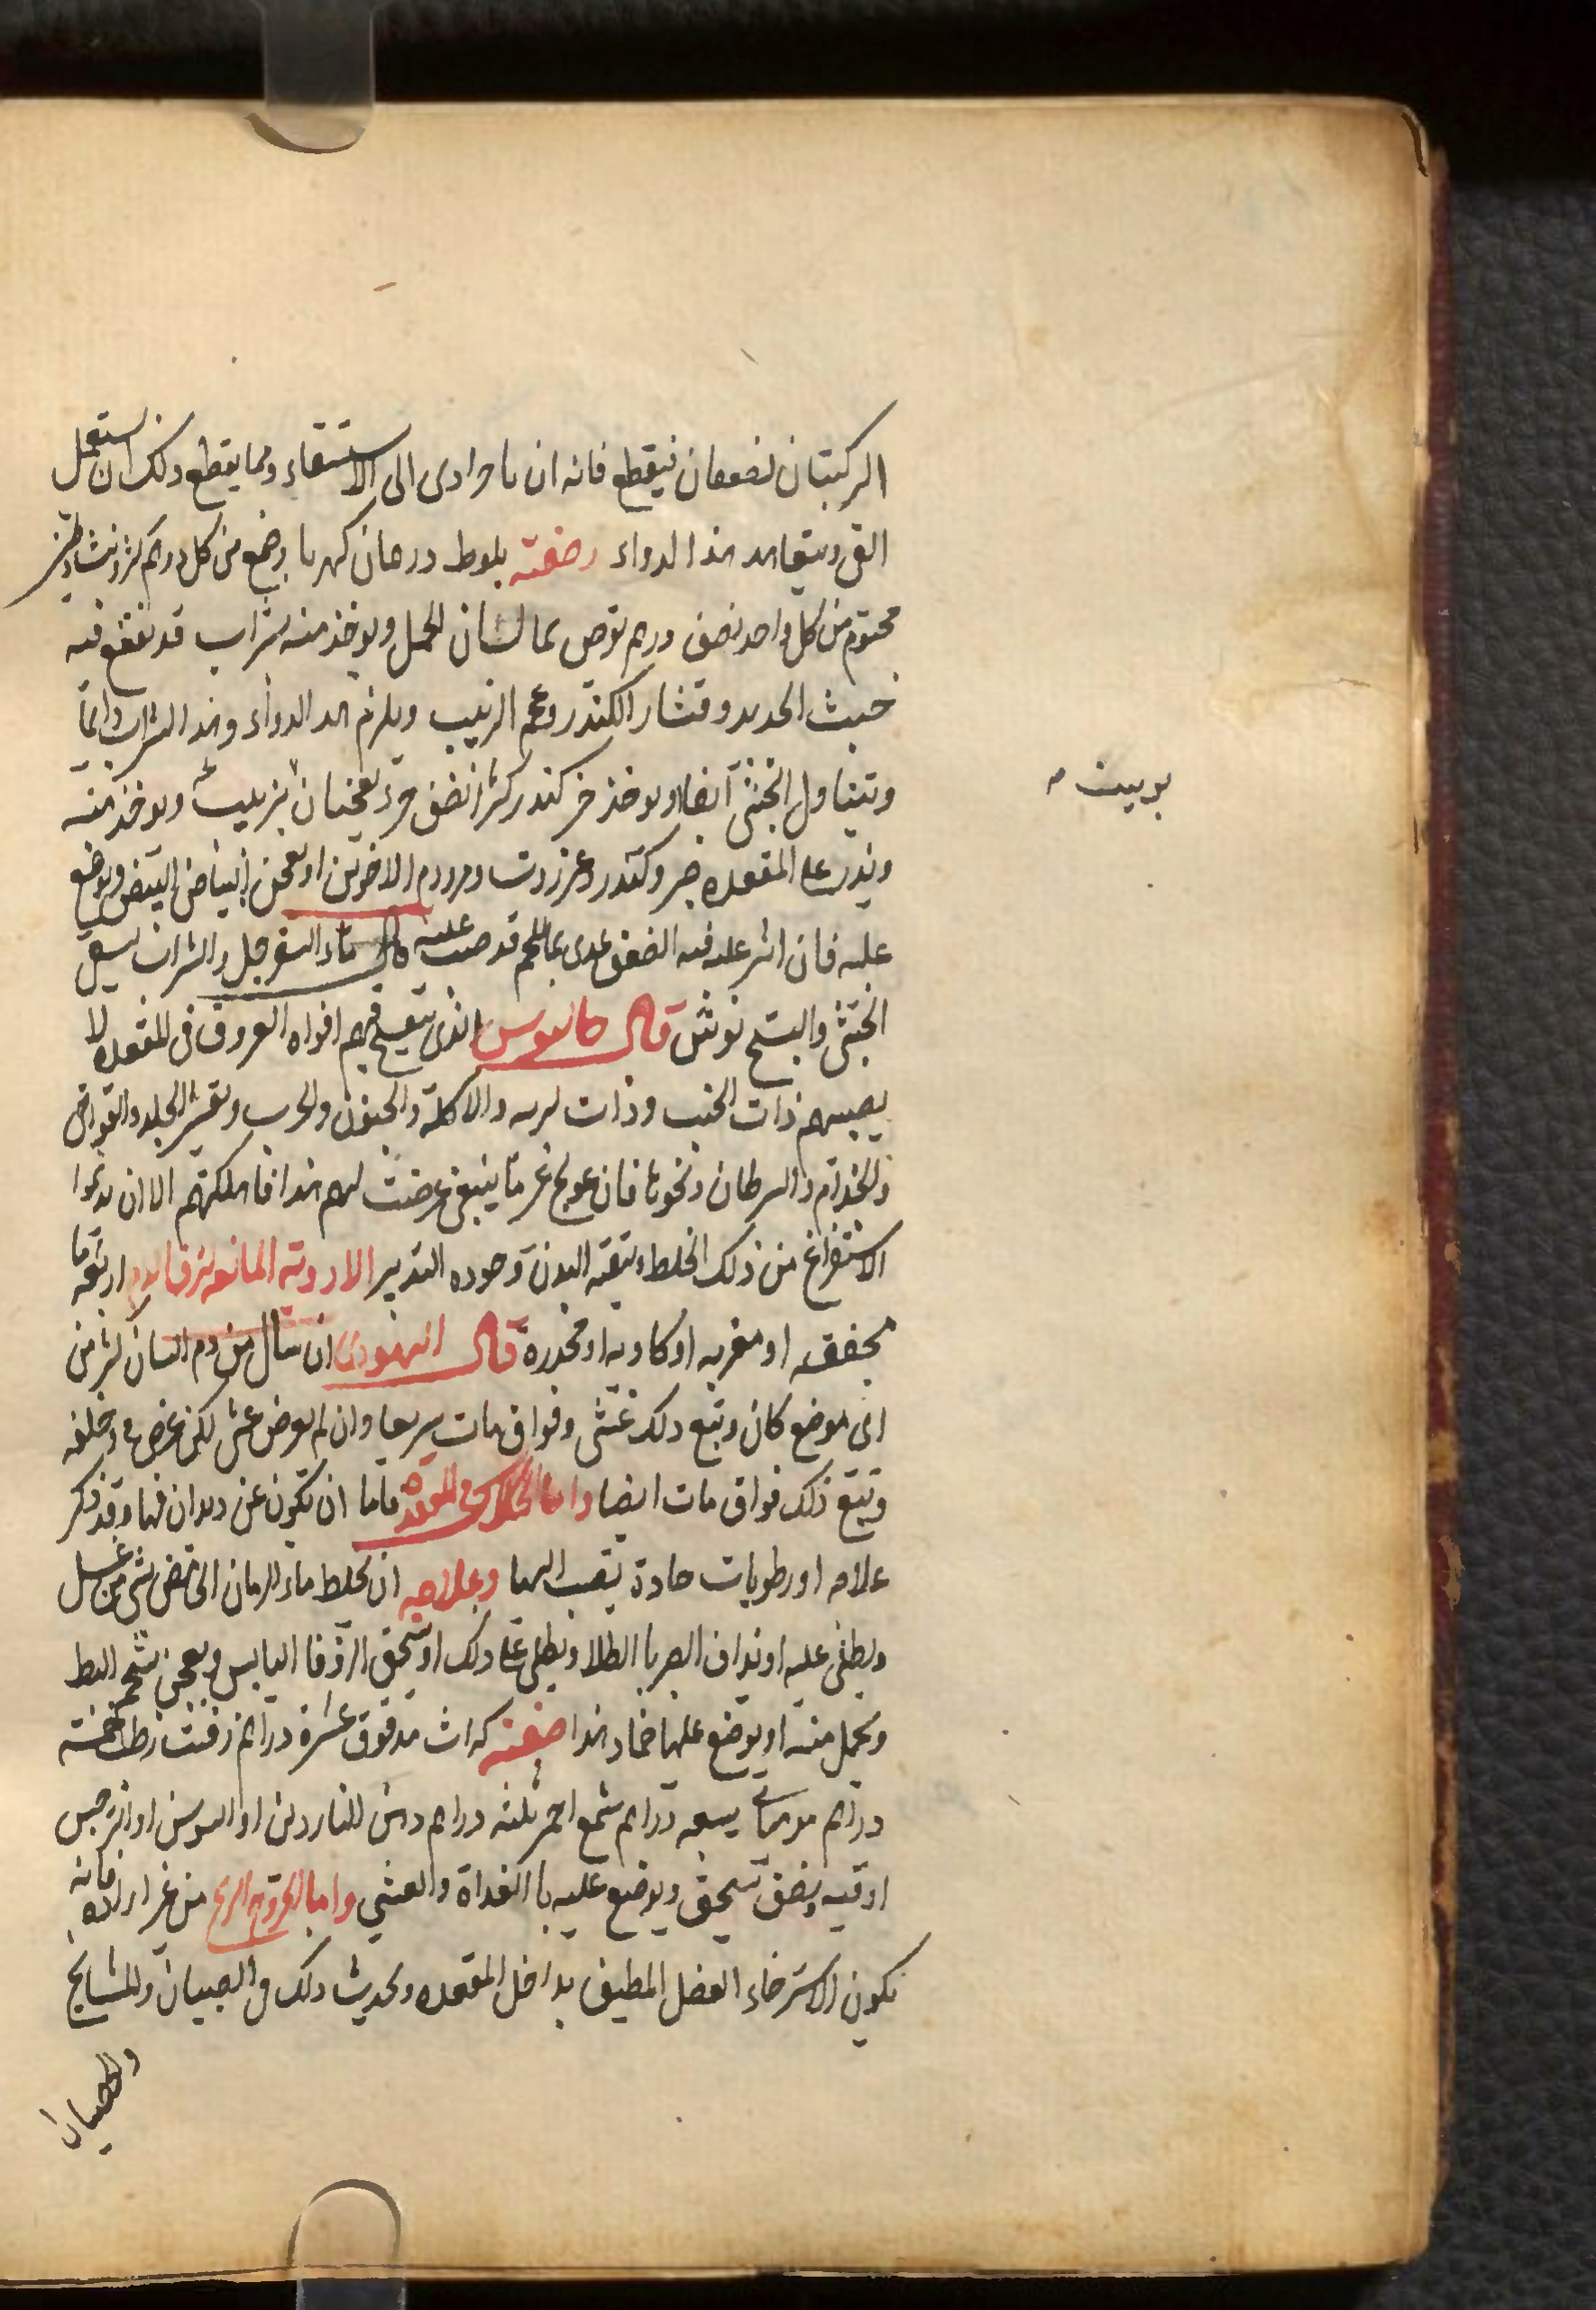 الركبتان تضعفان فيقطع فانه ان تاخر ادى الى الاستسقاء ومما يقطع ذلك ان يستعمل
القى ويتعاهد هذا الدواء وصفته بلوط درهمان كهربا وصمغ من كل درهم بزر
مختوم من كل واحد نصف درهم يقرص بماء لسان الحمل ويوخذ منه بشراب قد نقع فيه
خبث الحديد وقشار الكندر وعجم الزبيب ويلزم هذا الدواء وهذا الشراب دائما
ويتناول الخنثى ايضا ويوخذ كندر نصف جزء يعجنان بزبيب ويوخذ منه
بوبيت
ويذر على المقعده صبر وكندر وعنزروت ومر ودم الاخوين او يعجن ببياض البيض ويوضع
عليه فان اشر عليه فيه الضعف غدى بماء اللحم قد صب عليه ماء السفرجل والشراب
الخنثى قال جالينوس الذى تنفتح فيهم افواه العروق فى المقعده لا
يصيبهم ذات الجنب وذات الريه والاكلة والجنون والجرب وتقشر الجلد والقوابى
والجذام والسرطان ونحوها فان عولج غير ما ينبغى عرضت لهم هذا فاهلكتهم الا ان
الاستفراغ من ذلك الخلط وتنقية البدن وجوده التدبير الادوية المانعه لنزف الدم اربعة اما
مجففه او مغريه او كاويه او مخدره قال اليهودى ان سال من دم انسان كثير من
اى موضع كان وتبع ذلك غشى وفواق مات سريعا وان لم يعرض غشى لكن
وتبع ذلك فواق مات ايضا واما الحكاك فى المقعده فاما ان تكون عن ديدان فيها وقد ذكر
علاجه او رطوبات حادة تنصب اليها وعلاجه ان يخلط ماء الرمان الحامض بشى من عسل
ويطلى عليه او يداف الصبر بالطلا ويطلى على ذلك او يسحق الزوفا اليابس ويعجن بشحم البط
ويحمل منه او يوضع عليها ضماد هذا صفته كراث مدقوق عشرة دراهم زفت رطب خمسة
دراهم سبعه دراهم شمع احمر ثلثه دراهم دهن الناردين او السوسن او النرجس
اوقيه ونصف يسحق ويوضع عليه بالغداة والعشى واما خروج الريح من غير اراده فانه
يكون لاسترخاء العضل المطيف بداخل المقعده ويحدث ذلك فى الصبيان والمشايخ
والصبيان